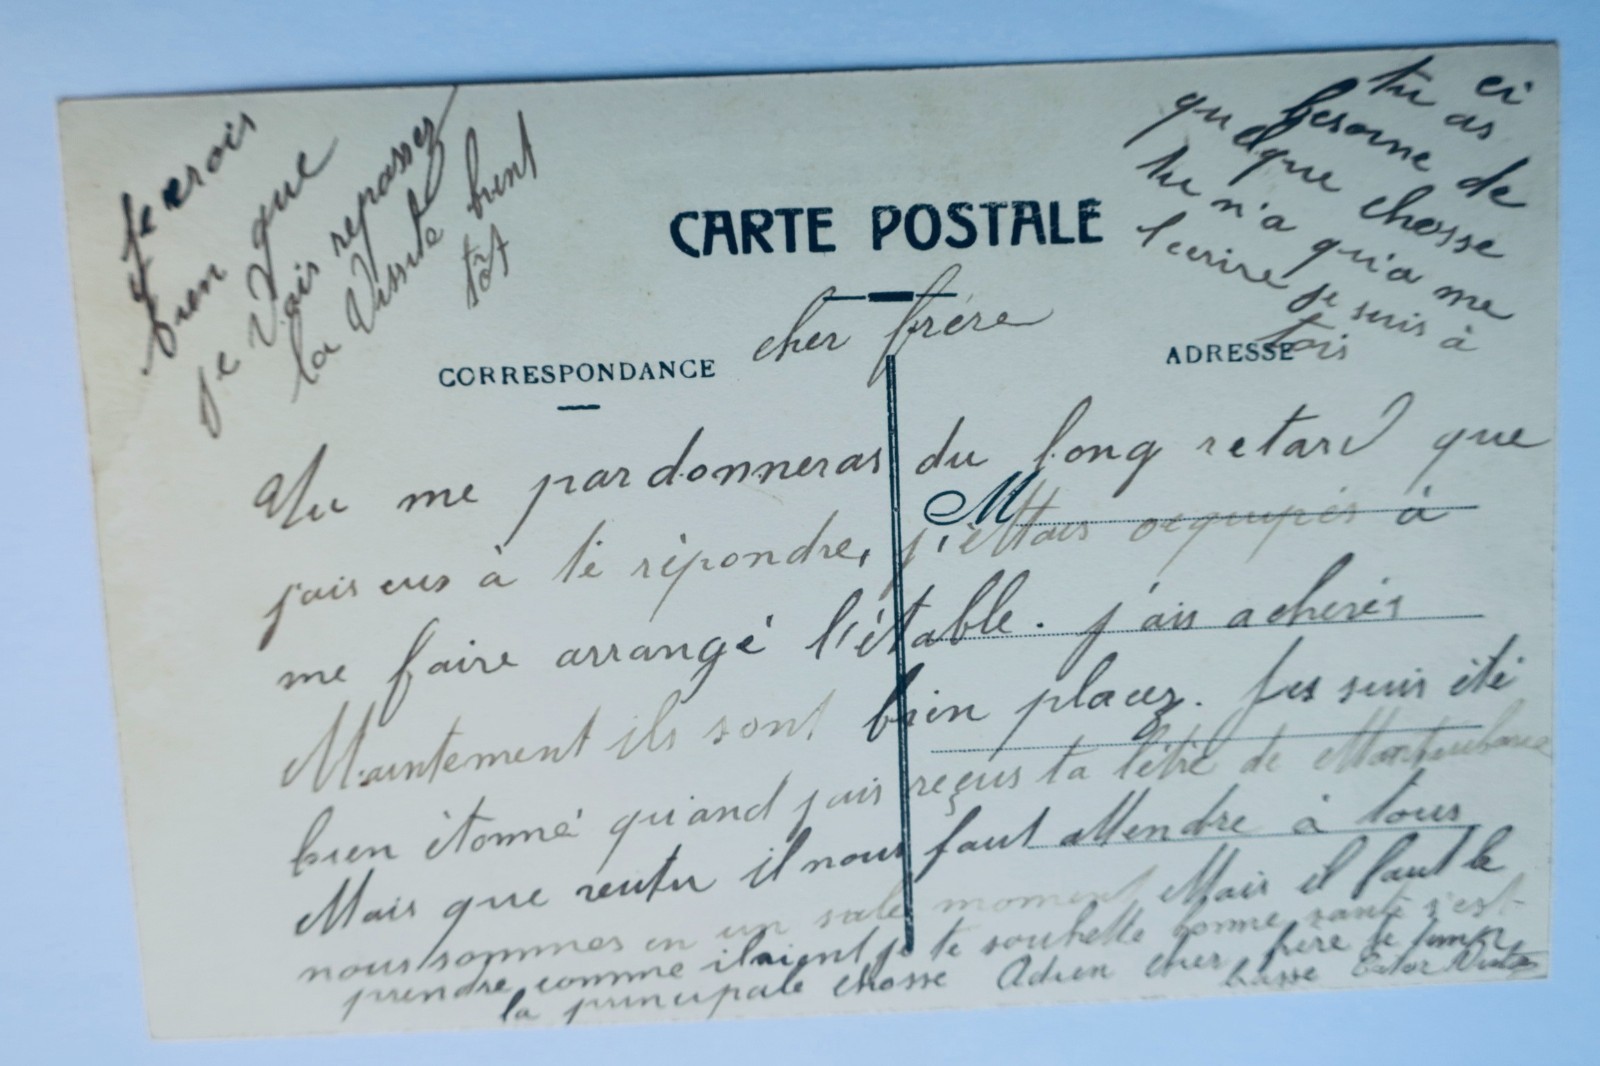 CARTE POSTALE
CORRESPONDANCE
ADRESSE
M
cher frére
Tu me pardonneras du long retard que
j'ais eus à te répondre, j'èttais ocqupés à
me faire arrangé l'étable. j'ais achevés
Maintement ils sont bien placez. Jes suis été
bien étonné quand j'ais reçus ta létre de
Mais que veutu il nous faut attendre à tous
nous sommes en un sale moment Mais il faut le
prendre comme il vient je te souhette bonne santé s'est
la principale chosse Adieu cher frére je
Je crois
bien que
je vais repassez
la Vissite bient
tôt
ci
tu as
besoine de
quelque chosse
tu n'a qu'a me
l'ecrire je suis à
tois